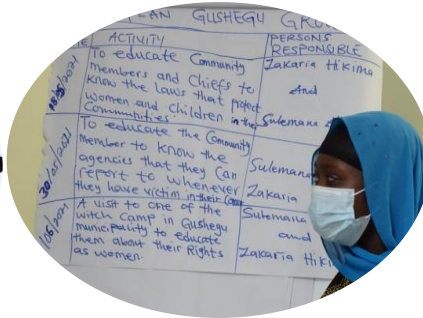 PLAN GUSHEGU
ACTIVITY
PERSONS
RESPONSIBLE
To educate Community
members and Chiefs to
know the laws that protect
women and children in the
Communities.
Zakaria Hikima
And
Sulemana
To educate the Community
member to know the
agencies that they can
report to whenever
they have victim in their
30/05/2021
Sulemana
Zakaria
A visit to one of the
witch camp in Gushegu
municipality to educate
them about their Rights
as women
Sulemana
and
Zakaria Hiki